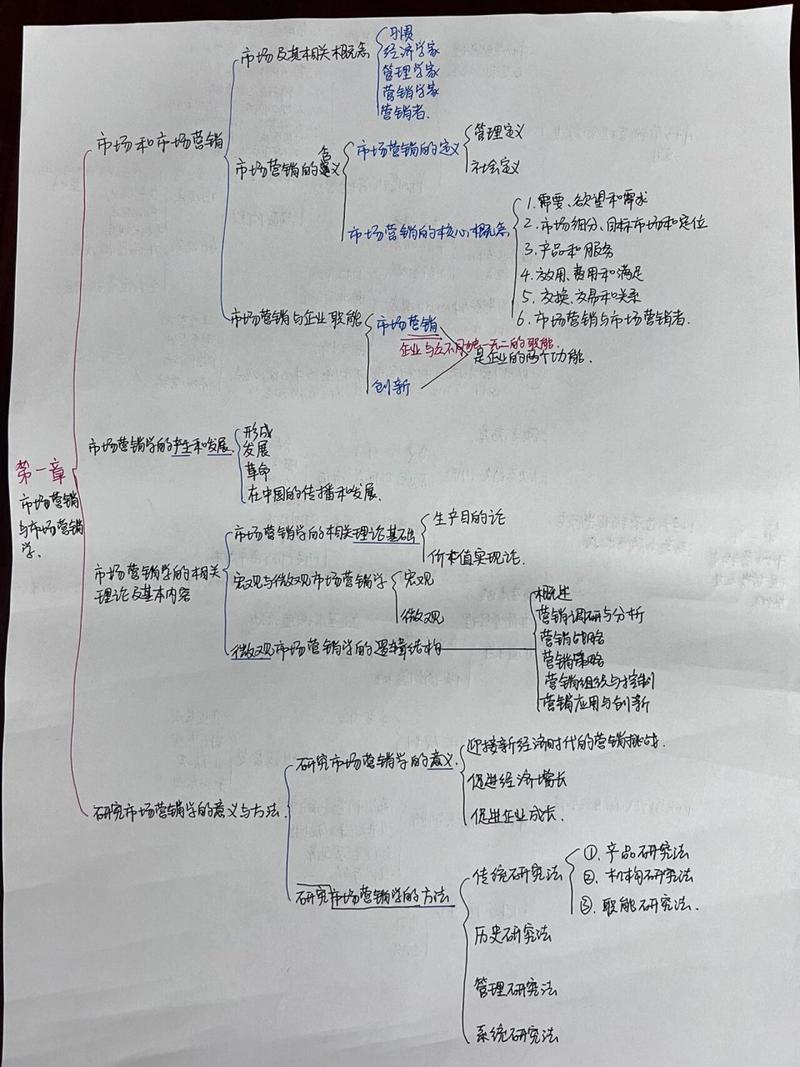 第一章
市场营销
与市场营销
学.
市场和市场营销
市场及其相关概念
习惯
经济学家
管理学家
营销学家
营销者.
市场营销的含义
市场营销的定义
管理定义
社会定义
市场营销的核心概念
1.需要、欲望和需求
2.市场细分、目标市场和定位
3.产品和服务
4.效用、费用和满足
5.交换、交易和关系
6.市场营销与市场营销者.
市场营销与企业职能
市场营销
独一无二的职能.
创新
是企业的两个功能.
市场营销学的产生和发展.
形成
发展
革命
在中国的传播和发展.
市场营销学的相关
理论及基本内容
市场营销学的相关理论基础
生产目的论
价值实现论.
宏观与微观市场营销学
宏观
微观
微观市场营销学的逻辑结构
概述
营销调研与分析
营销战略
营销策略
营销组织与控制
营销应用与创新
研究市场营销学的意义与方法.
研究市场营销学的意义.
迎接新经济时代的营销挑战.
促进经济增长
促进企业成长.
研究市场营销学的方法
传统研究法
①.产品研究法
②.机构研究法
③.职能研究法.
历史研究法
管理研究法
系统研究法